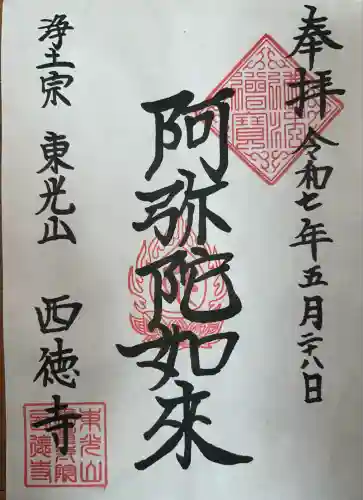 奉拝 令和七年五月二十八日
阿弥陀如来
浄土宗 東光山 西徳寺
佛法僧寶